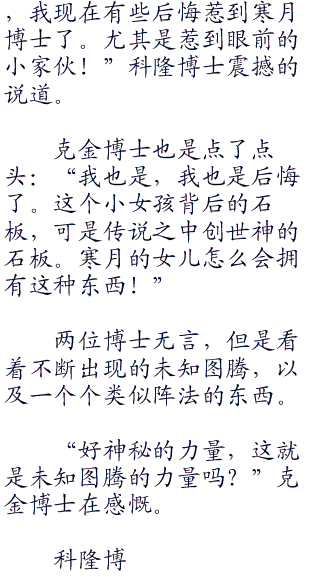 ，我现在有些后悔惹到寒月
博士了。尤其是惹到眼前的
小家伙！”科隆博士震撼的
说道。
克金博士也是点了点
头：“我也是，我也是后悔
了。这个小女孩背后的石
板，可是传说之中创世神的
石板。寒月的女儿怎么会拥
有这种东西！”
两位博士无言，但是看
着不断出现的未知图腾，以
及一个个类似阵法的东西。
“好神秘的力量，这就
是未知图腾的力量吗？”克
金博士在感慨。
科隆博